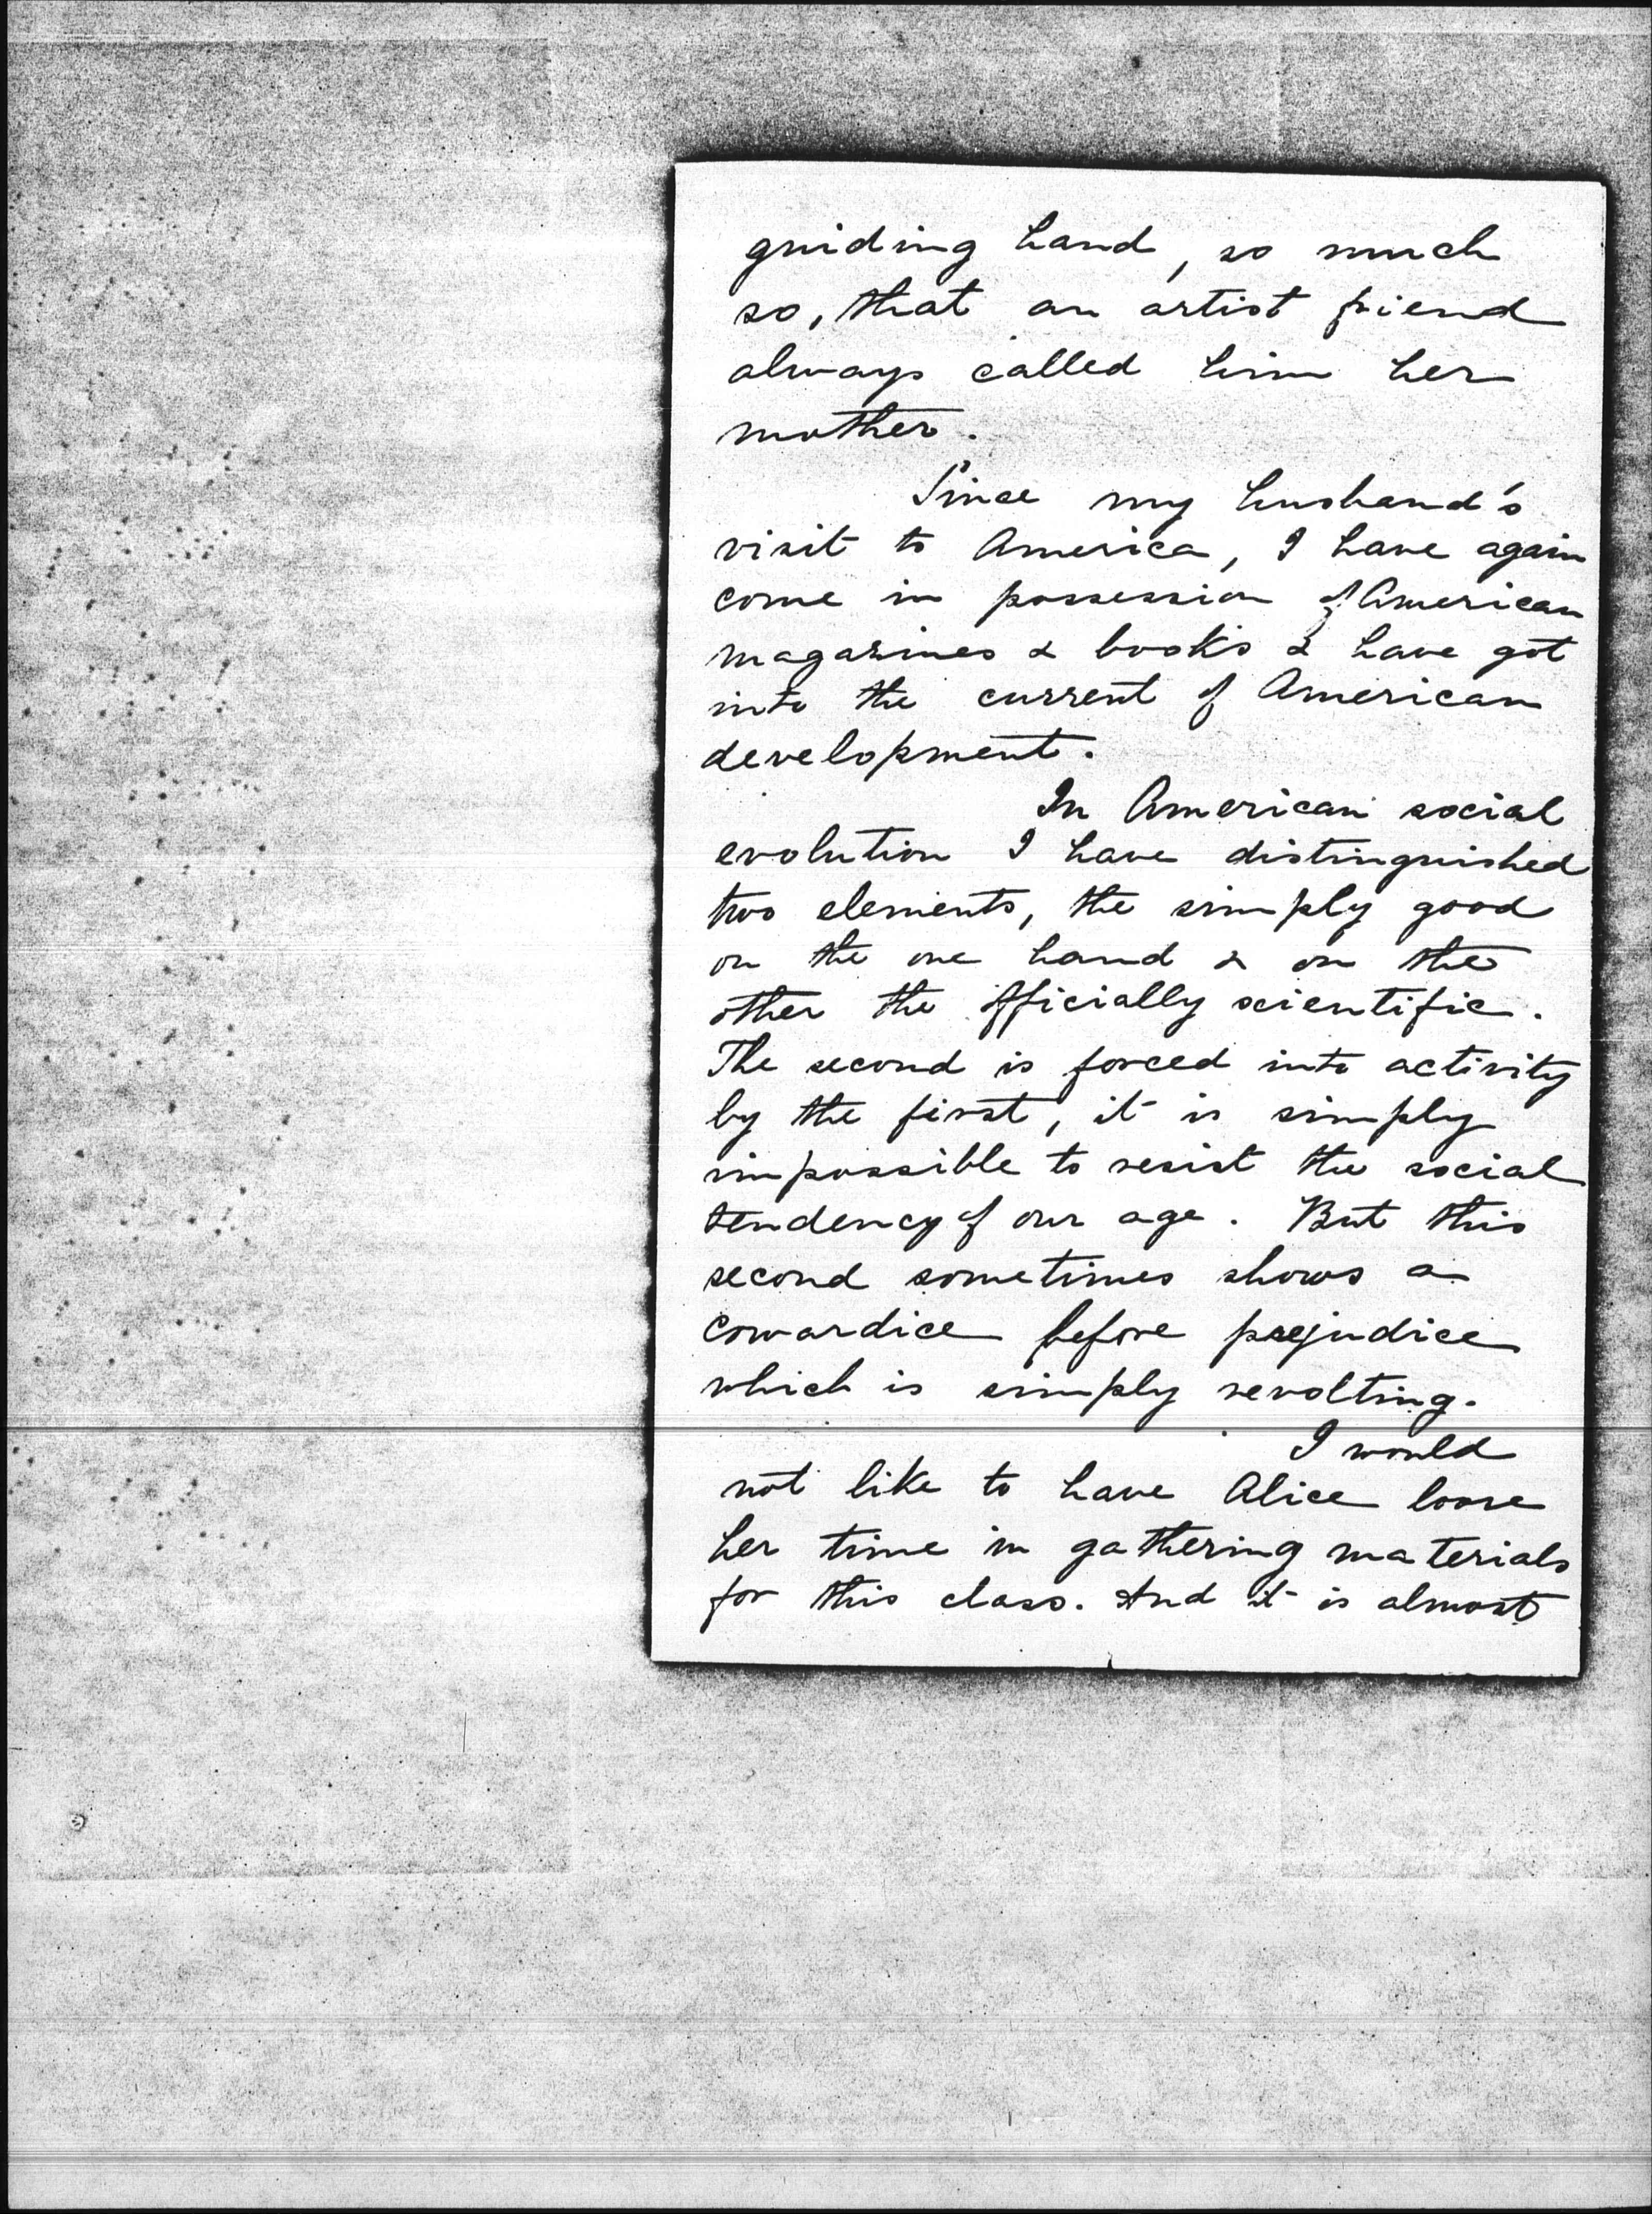 guiding hand, so much
so, that an artist friend
always called him her
mother.
Since my husband's
visit to America, I have again
come in possession of American
magazines & books & have got
into the current of American
development.
In American social
evolution I have distinguished
two elements, the simply good
on the one hand & on the
other the officially scientific.
The second is forced into activity
by the first, it is simply
impossible to resist the social
tendency of our age. But this
second sometimes shows a
cowardice before prejudice
which is simply revolting.
I would
not like to have Alice loose
her time in gathering materials
for this class. And it is almost